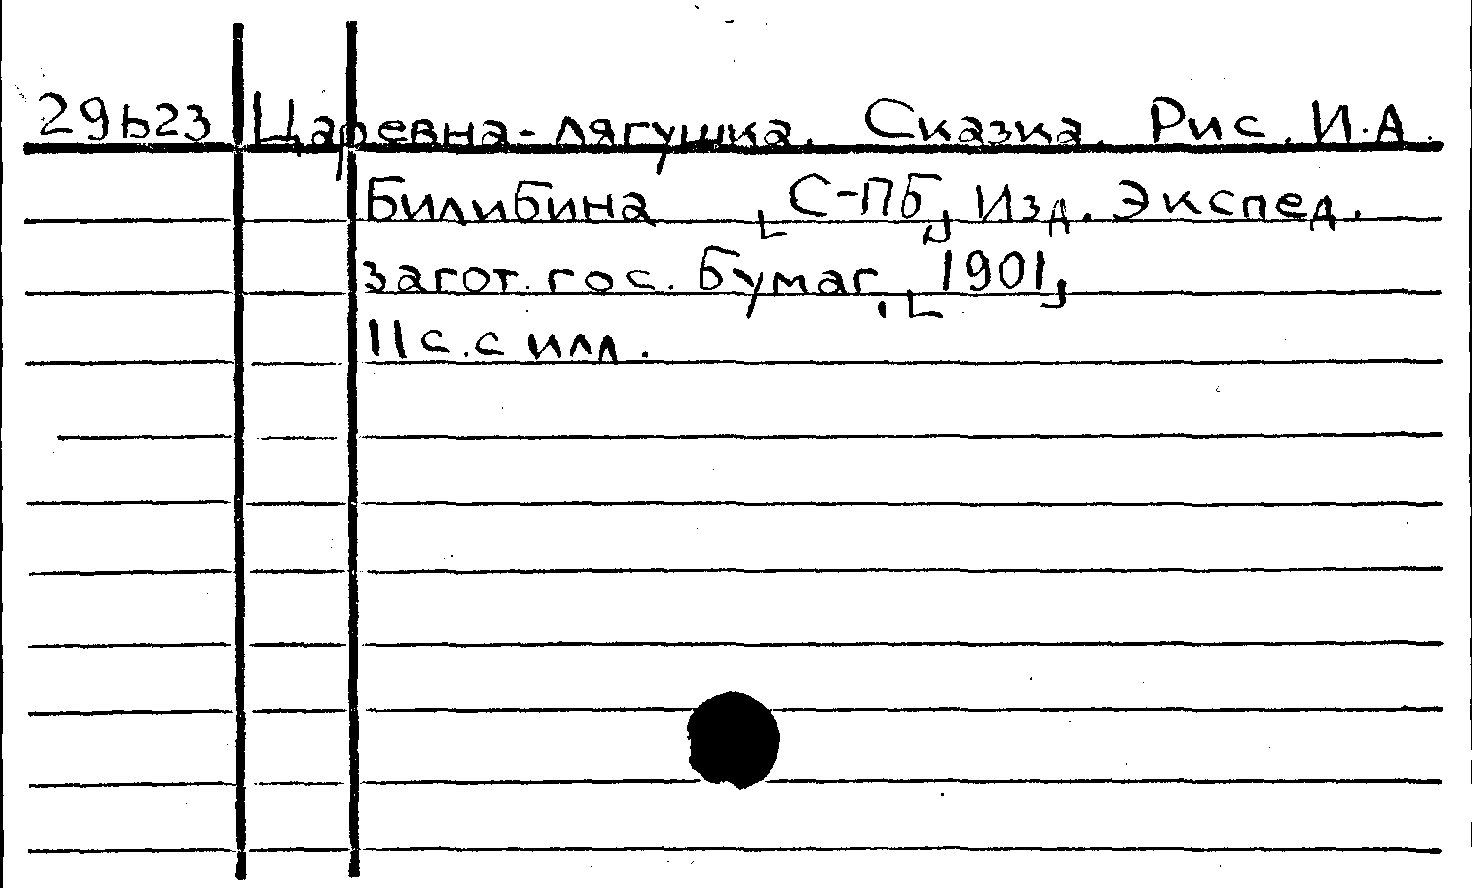 29b23 Царевна-лягушка. Сказка. Рис. И.А.
Билибина [С-Пб], Изд. Экспед.
загот. гос. Бумаг, [1901]
11 с. с илл.